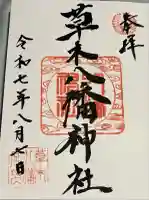 奉拝
草木八幡神社
令和七年八月七日